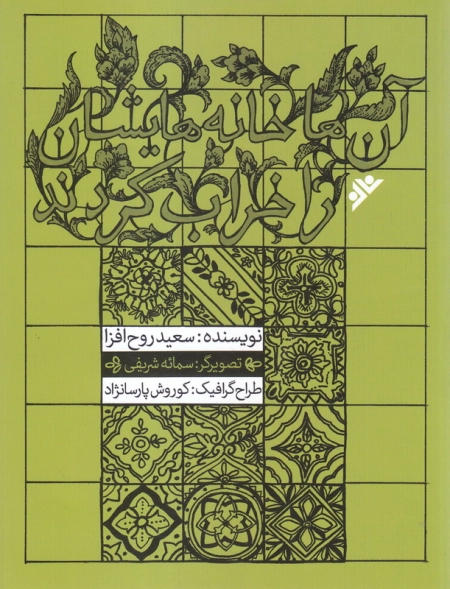 آن‌ها خانه‌هایشان
را خراب کردند
نویسنده: سعید روح افزا
تصویرگر: سمانه شریفی
طراح گرافیک: کوروش پارسانژاد